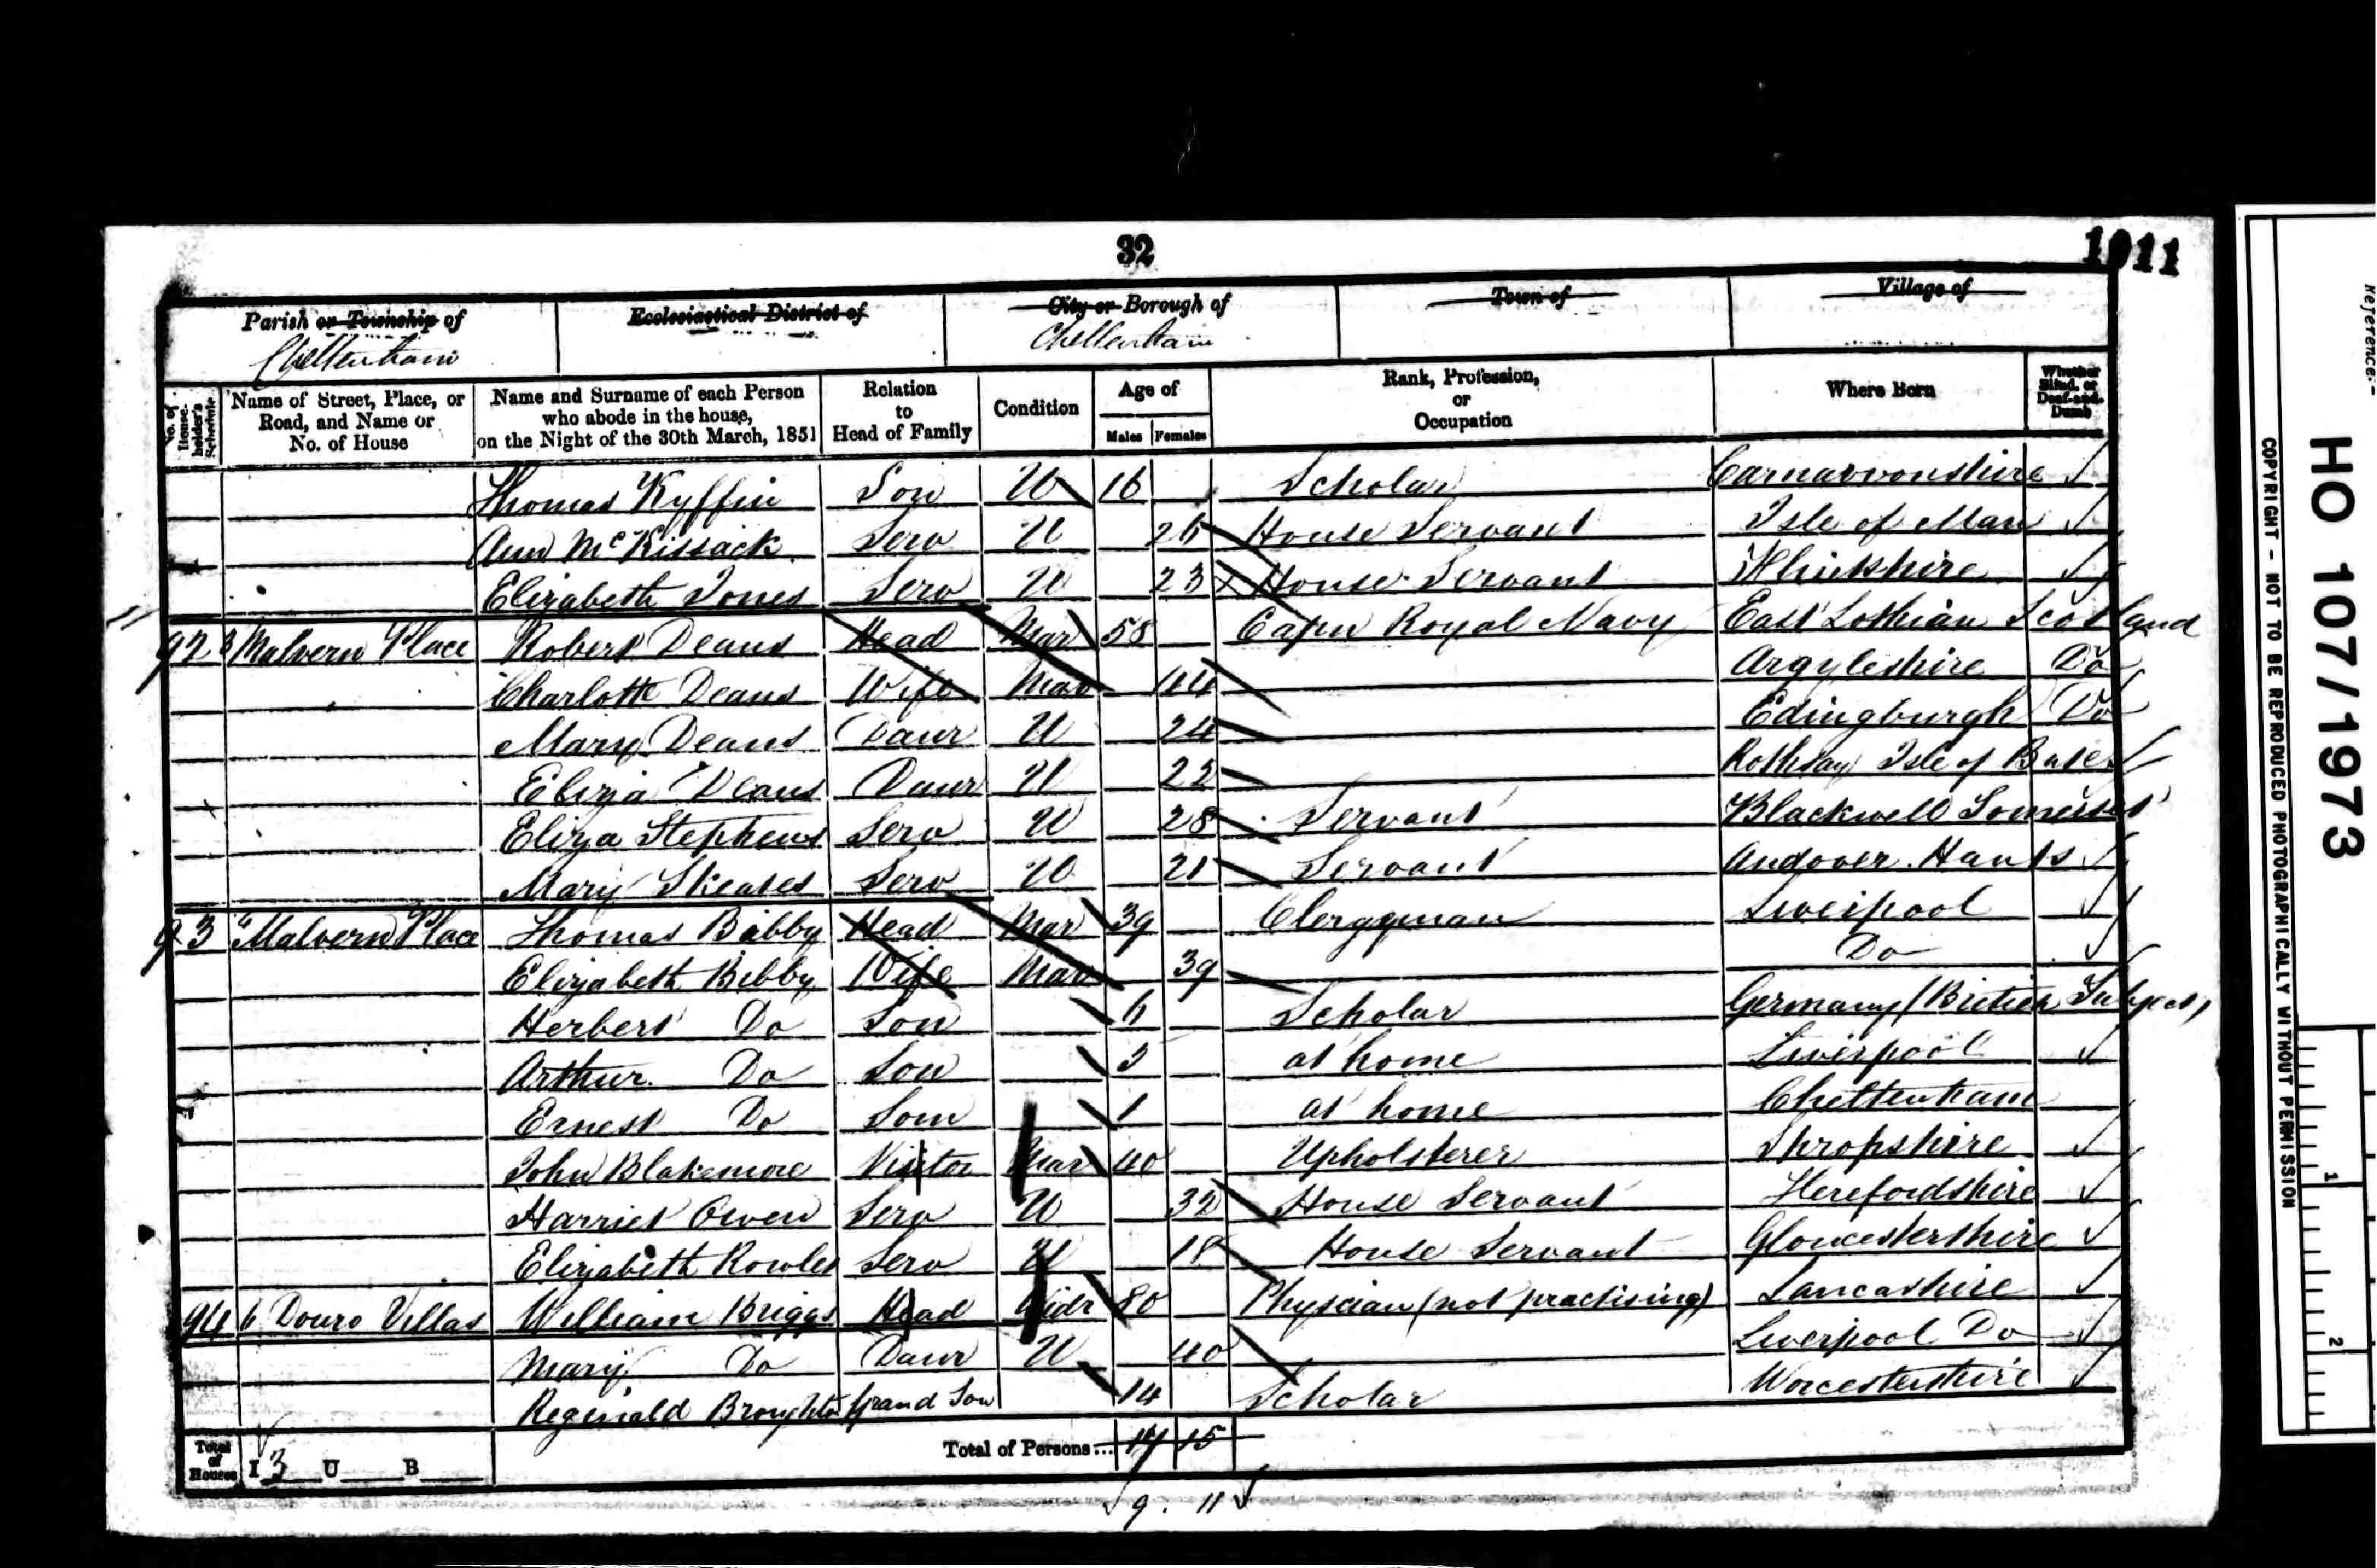 32
1911
Parish or Township of
Cheltenham
Ecclesiastical District of
City or Borough of
Cheltenham
Town of
Village of
No. of House-holder's Schedule
Name of Street, Place, or Road, and Name or No. of House
Name and Surname of each Person who abode in the house, on the Night of the 30th March, 1851
Relation to Head of Family
Condition
Age of
Males Females
Rank, Profession, or Occupation
Where Born
Whether Blind, or Deaf-and-Dumb
Thomas Kyffin Son U 16 Scholar Carnarvonshire
Ann McKissack Serv U 26 House Servant Isle of Man
Elizabeth Jones Serv U 23 House Servant Flintshire
92 3 Malvern Place Robert Deans Head Mar 58 Captn Royal Navy East Lothian Scotland
Charlotte Deans Wife Mar 44 Argyleshire Do
Mary Deans Daur U 24 Edingburgh Do
Eliza Deans Daur U 22 Rothsay Isle of Bute
Eliza Stephens Serv U 28 Servant Blackwell Somerset
Mary Skeates Serv U 21 Servant Andover Hants
93 Malvern Place Thomas Bibby Head Mar 39 Clergyman Liverpool
Elizabeth Bibby Wife Mar 39 Do
Herbert Do Son 6 Scholar Germany (British Subject)
Arthur Do Son at home Liverpool
Ernest Do Son 1 at home Cheltenham
John Blakemore Visitor Mar 40 Upholsterer Shropshire
Harriet Owen Serv U 32 House Servant Herefordshire
Elizabeth Rowles Serv U 18 House Servant Gloucestershire
94 6 Douro Villas William Briggs Head Widr 80 Physician (not practising) Lancashire
Mary Do Daur U 40 Liverpool Do
Reginald Broughton Grand Son 14 Scholar Worcestershire
Total of Houses I 3 U B
Total of Persons... 15
9. 11
Reference:-
HO 107/1973
COPYRIGHT - NOT TO BE REPRODUCED PHOTOGRAPHICALLY WITHOUT PERMISSION
1
2